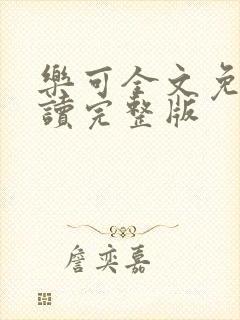 樂可全文免
讀完整版
詹奕嘉